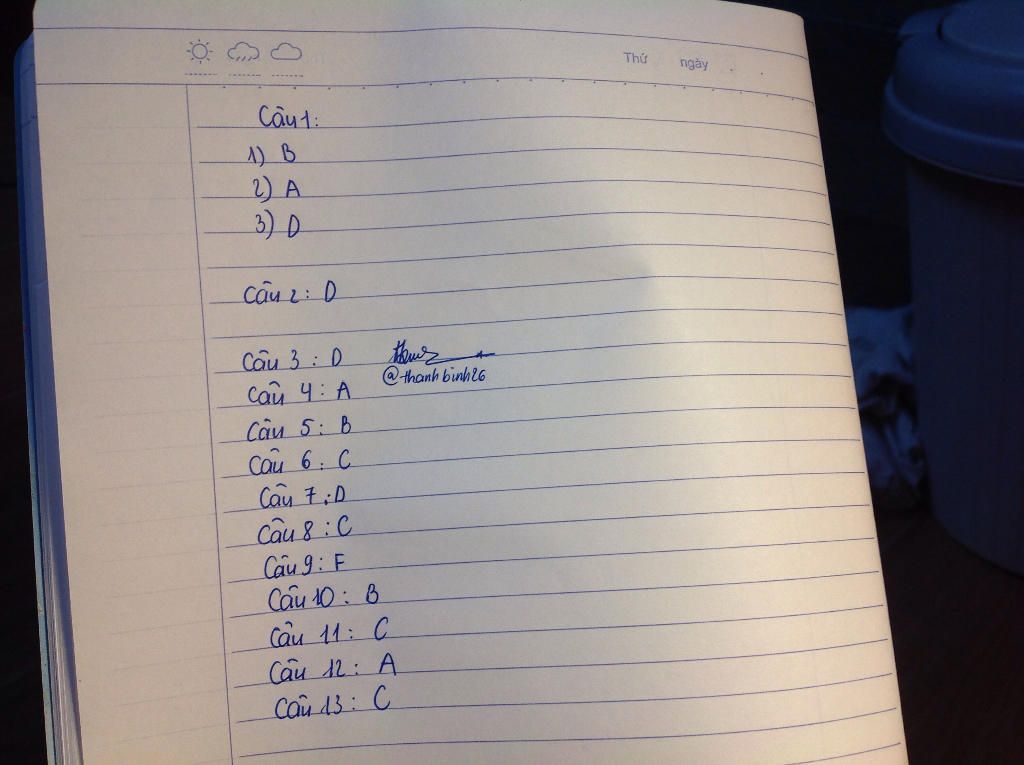 Thứ ngày
Câu 1:
1) B
2) A
3) D
Câu 2: D
Câu 3: D
@thanhbinh26
Câu 4: A
Câu 5: B
Câu 6: C
Câu 7: D
Câu 8: C
Câu 9: F
Câu 10: B
Câu 11: C
Câu 12: A
Câu 13: C